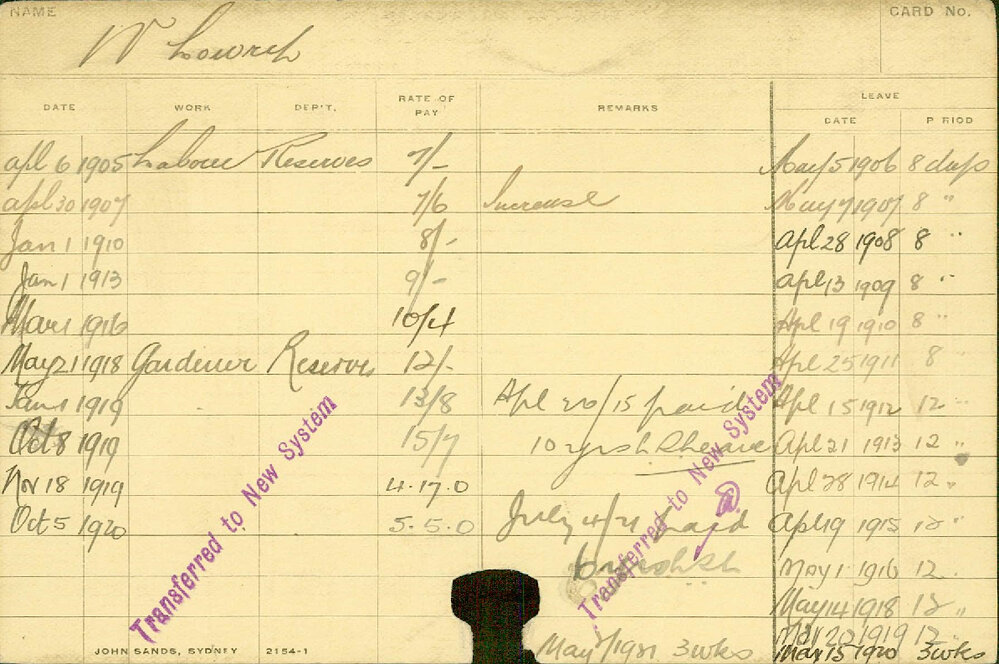 NAME CARD No.
W Lowrek
DATE WORK DEP'T. RATE OF PAY REMARKS LEAVE
DATE P RIOD
Apl 6 1905 Labour Reserves 7/- May 5 1906 8 days
Apl 30 1907 7/6 Increase May 7 1907 8 "
Jan 1 1910 8/- Apl 28 1908 8 "
Jan 1 1913 9/- Apl 13 1909 8 "
Mar 1 1916 10/4 Apl 19 1910 8 "
May 21 1918 Gardener Reserves 12/- Apl 25 1911 8
Jan 1 1919 13/8 Apl 20/15 paid Apl 15 1912 12 "
Oct 8 1919 15/7 10 yrs Apl 21 1913 12 "
Nov 18 1919 4.17.0 Apl 28 1914 12 "
Oct 5 1920 5.5.0 July 4/21 paid Apl 19 1915 12 "
May 1 1916 12
May 14 1918 12 "
Mar 20 1919 12 "
May 1921 3 wks Mar 15 1920 3 wks
Transferred to New System
Transferred to New System
JOHN SANDS, SYDNEY 2154-1